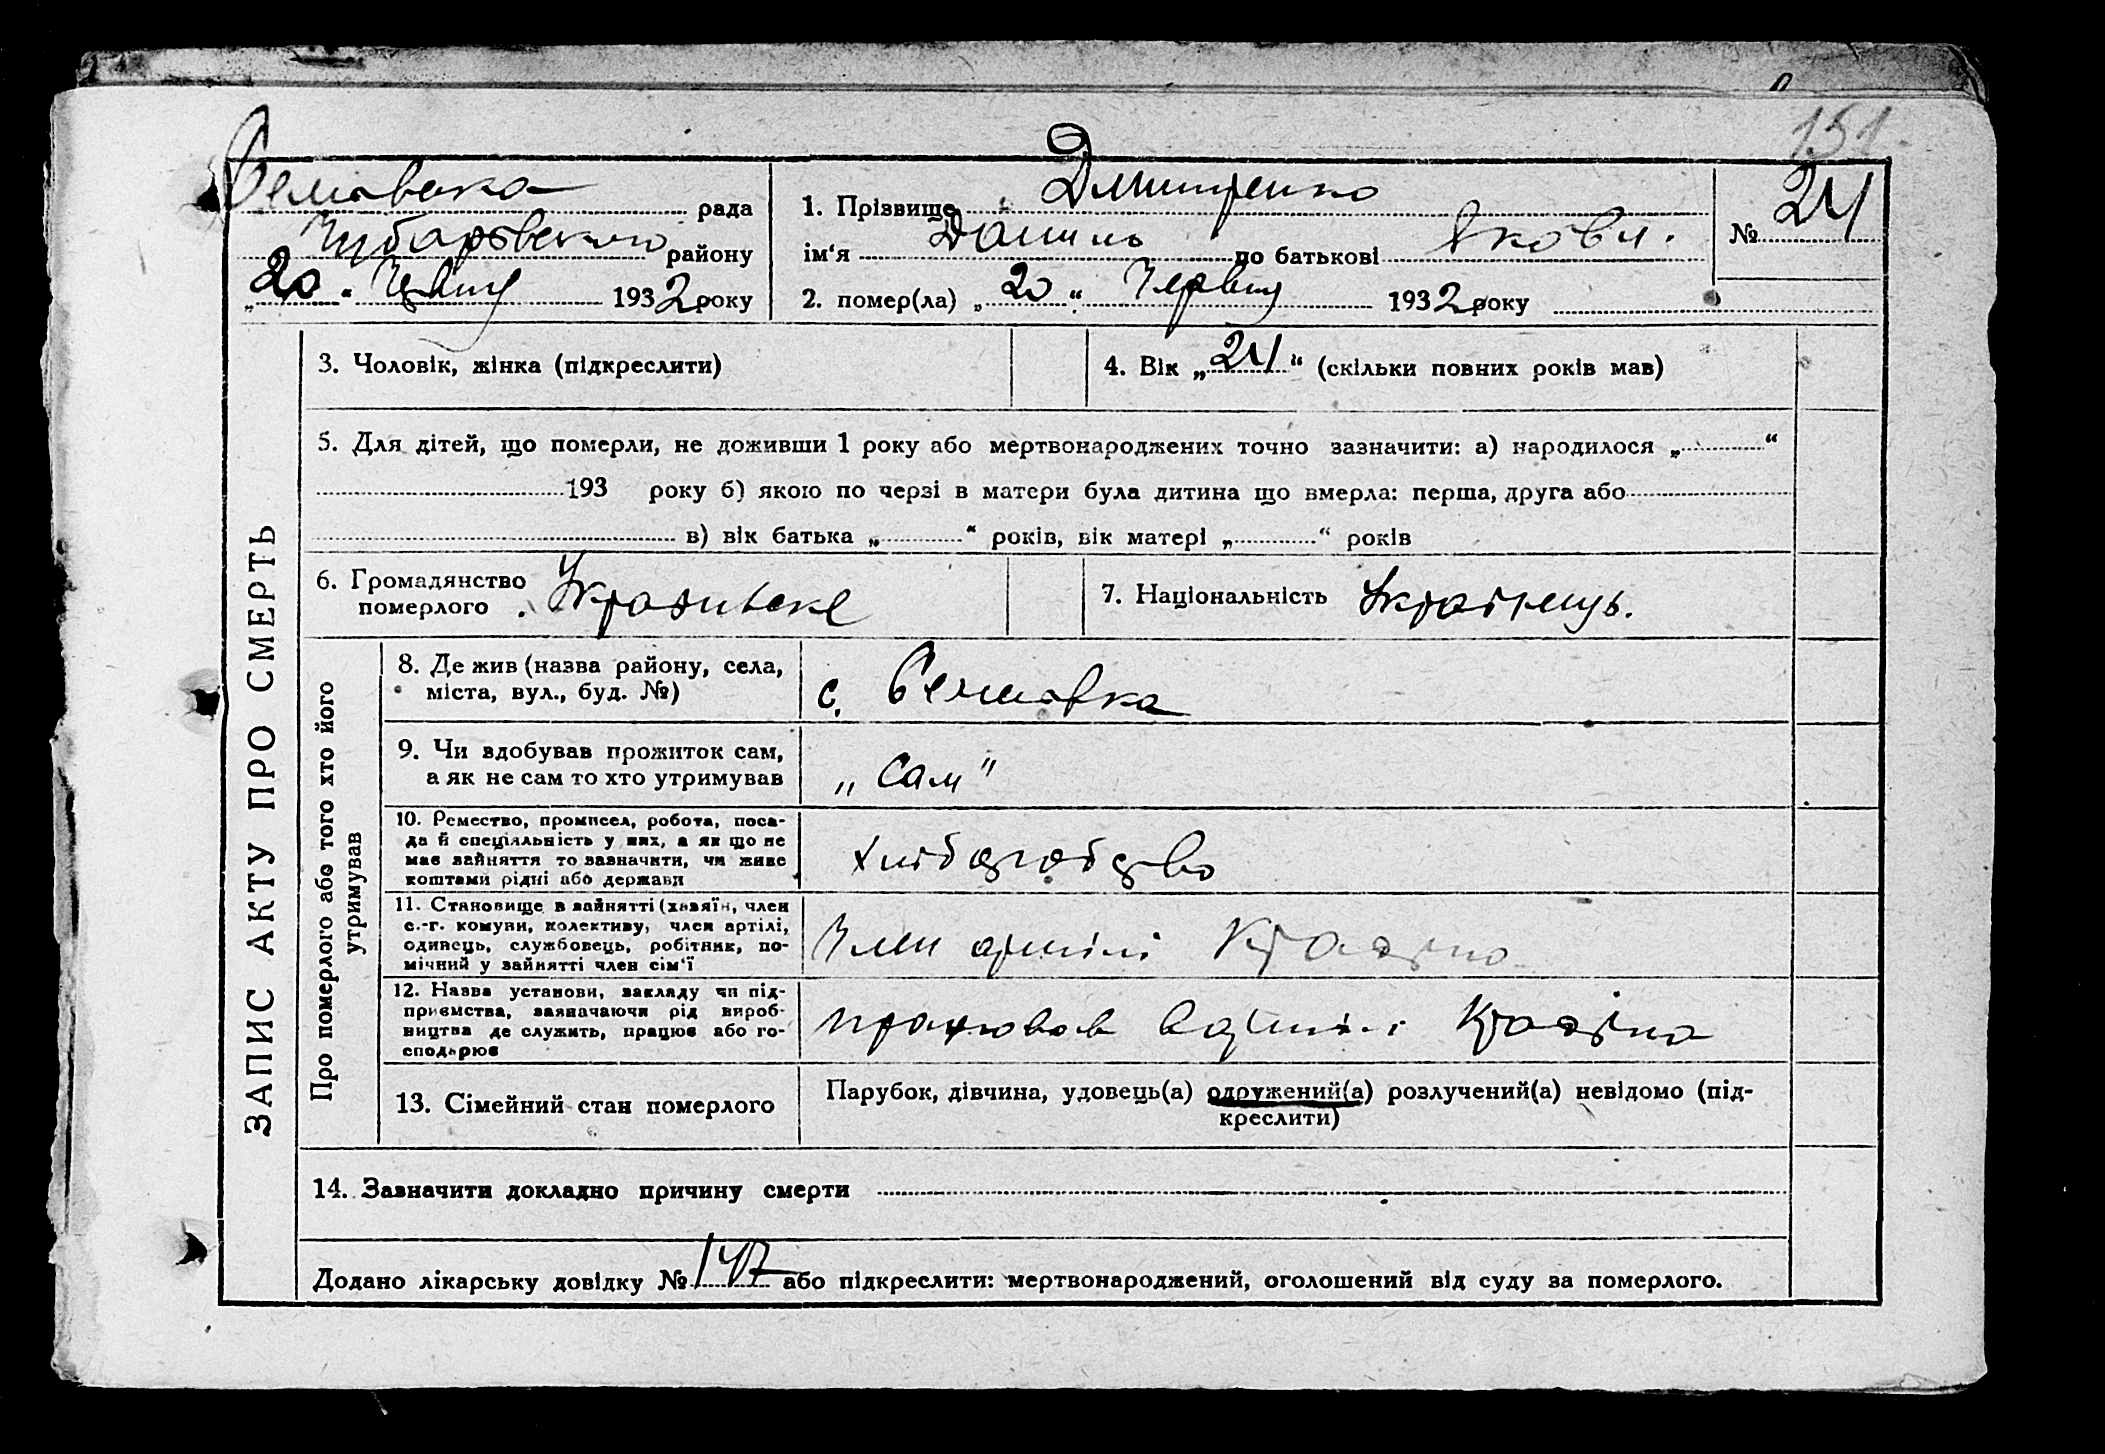 151.
Семовська рада
Чубарівського району
„20“ Червня 1932 року
1. Прізвище Дмитренко
ім‘я Данило по батькові Яковл.
№ 24
2. помер(ла) „20“ Червня 1932 року
ЗАПИС АКТУ ПРО СМЕРТЬ
3. Чоловік, жінка (підкреслити)
4. Вік „24“ (скільки повних років мав)
5. Для дітей, що померли, не доживши 1 року або мертвонароджених точно зазначити: а) народилося „ “
193 року б) якою по черзі в матери була дитина що вмерла: перша, друга або
в) вік батька „ “ років, вік матері „ “ років
6. Громадянство
померлого Українське
7. Національність Українець.
Про померлого або того хто його
утримував
8. Де жив (назва району, села,
міста, вул., буд. №)
с. Семовка
9. Чи вдобував прожиток сам,
а як не сам то хто утримував
„Сам"
10. Ремество, промисел, робота, поса-
да й спеціяльність у них, а як що не
має зайняття то зазначити, чи живе
коштами рідні або держави
хліборобство
11. Становище в зайнятті (хазяїн, член
с.-г. комуни, колективу, член артілі,
одинець, службовець, робітник, по-
мічний у зайнятті член сім‘ї
Член артілі
12. Назва установи, закладу чи під-
приємства, зазначаючи рід вироб-
ництва де служить, працює або го-
сподарює
працював в артілі
13. Сімейний стан померлого
Парубок, дівчина, удовець(а) одружений(а) розлучений(а) невідомо (під-
креслити)
14. Зазначити докладно причину смерти
Додано лікарську довідку № 147 або підкреслити: мертвонароджений, оголошений від суду за померлого.